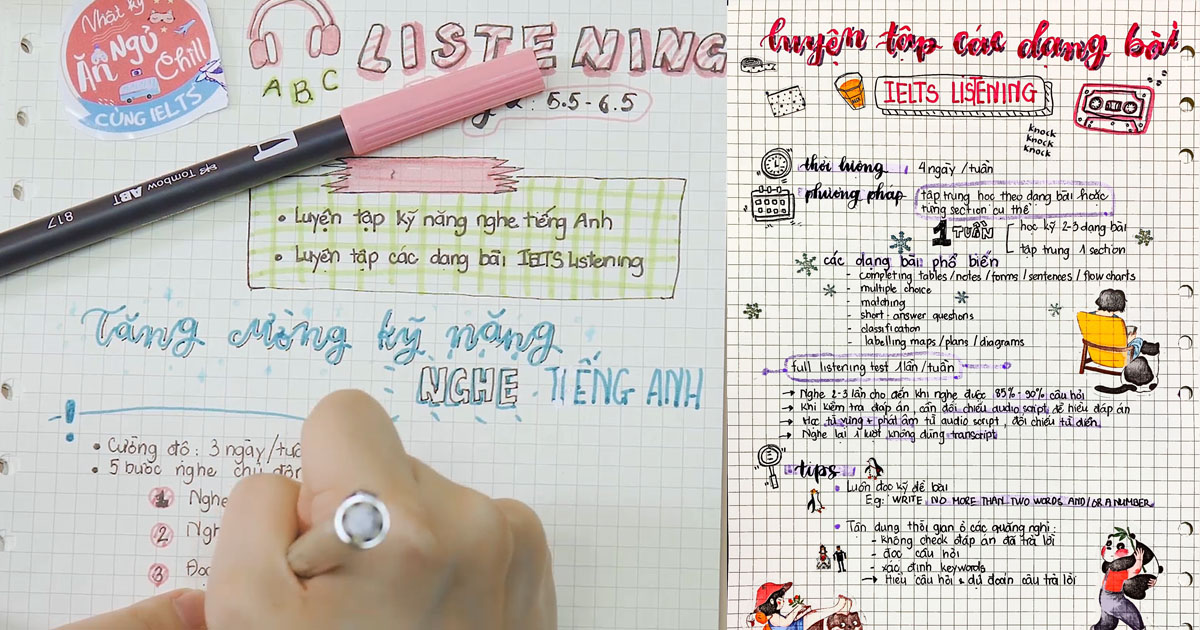 Nhật ký
ĂN NGỦ
Chill
CÙNG IELTS
A B C
LISTENING
: 5.5 - 6.5
Tombow ABT
817
• Luyện tập kỹ năng nghe tiếng Anh
• Luyện tập các dạng bài IELTS Listening
Tăng cường kỹ năng
NGHE TIẾNG ANH
• Cường độ : 3 ngày/tuầ
• 5 bước nghe chủ độn
1 Nghe
2 Ngh
3 Đọc
luyện tập các dạng bài
IELTS LISTENING
knock
knock
knock
thời lượng 4 ngày / tuần
phương pháp tập trung học theo dạng bài hoặc
từng section cụ thể
1 TUẦN học kỹ 2-3 dạng bài
tập trung 1 section
các dạng bài phổ biến
- completing tables / notes / forms / sentences / flow charts
- multiple choice
- matching
- short-answer questions
- classification
- labelling maps / plans / diagrams
full listening test 1 lần / tuần
→ Nghe 2-3 lần cho đến khi nghe được 85% - 90% câu hỏi
→ Khi kiểm tra đáp án, cần đối chiếu audio script để hiểu đáp án
→ Học từ vựng + phát âm từ audio script, đối chiếu từ điển
→ Nghe lại 1 lượt không dùng transcript
tips
• Luôn đọc kỹ đề bài
Eg: WRITE NO MORE THAN TWO WORDS AND/OR A NUMBER
• Tận dụng thời gian ở các quãng nghỉ :
- không check đáp án đã trả lời
- đọc câu hỏi
- xác định keywords
→ Hiểu câu hỏi & dự đoán câu trả lời